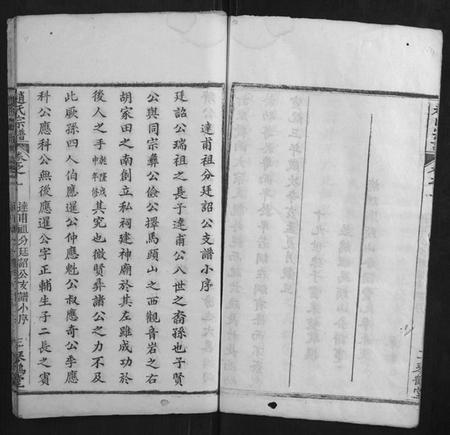 達甫祖分廷詔公支譜小序
廷詔公瑞祖之長子達甫公八世之裔孫也子賢
公與同宗彝公儉公擇馬頭山之西觀音岩之右
胡家田之南創立私祠建神廟於其左雖成功於
後人之手乾隆戊申年修其究也微賢彝諸公之力不及
此厥孫四人伯應暹公仲應魁公叔應奇公季應
科公應科公無後應暹公字正輔生子二長之賓
趙氏宗譜
卷之一
達甫祖分廷詔公支譜小序
三琴鶴堂
二琴鶴堂